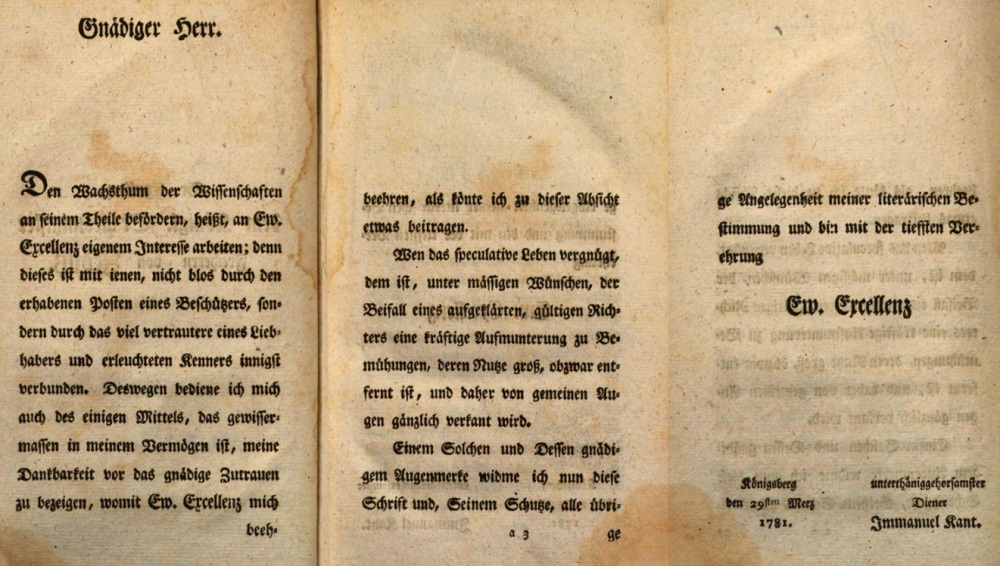 Gnädiger Herr.
Den Wachsthum der Wissenschaften
an seinem Theile befördern, heißt, an Ew.
Excellenz eigenem Interesse arbeiten; denn
dieses ist mit ienen, nicht blos durch den
erhabenen Posten eines Beschützers, son-
dern durch das viel vertrautere eines Lieb-
habers und erleuchteten Kenners innigst
verbunden. Deswegen bediene ich mich
auch des einigen Mittels, das gewisser-
massen in meinem Vermögen ist, meine
Dankbarkeit vor das gnädige Zutrauen
zu bezeigen, womit Ew. Excellenz mich
beeh-
beehren, als könte ich zu dieser Absicht
etwas beitragen.
Wen das speculative Leben vergnügt,
dem ist, unter mässigen Wünschen, der
Beifall eines aufgeklärten, gültigen Rich-
ters eine kräftige Aufmunterung zu Be-
mühungen, deren Nutze groß, obzwar ent-
fernt ist, und daher von gemeinen Au-
gen gänzlich verkant wird.
Einem Solchen und Dessen gnädi-
gem Augenmerke widme ich nun diese
Schrift und, Seinem Schutze, alle übri-
a 3 ge
ge Angelegenheit meiner literärischen Be-
stimmung und bin mit der tiefsten Ver-
ehrung
Ew. Excellenz
Königsberg
den 29sten Merz
1781.
unterthäniggehorsamster
Diener
Immanuel Kant.